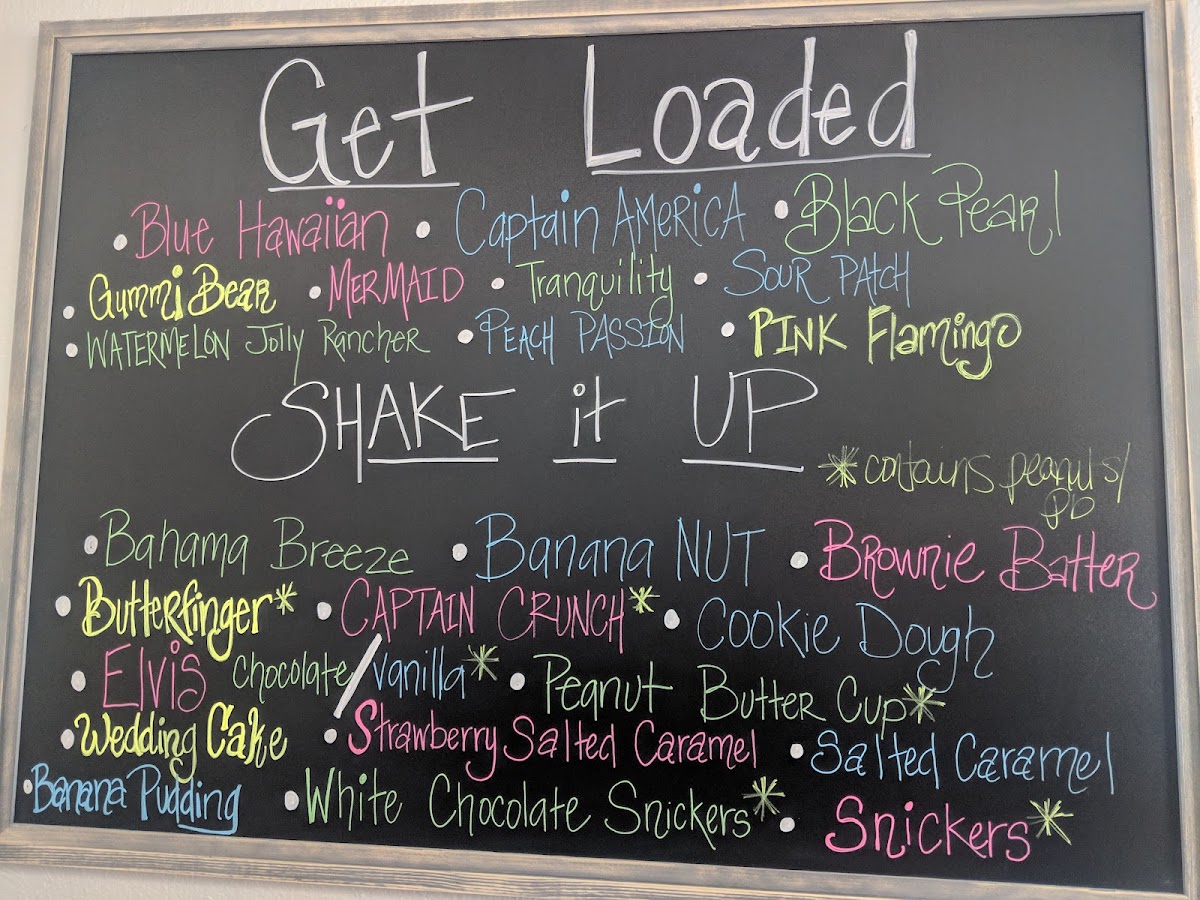 Get Loaded
• Blue Hawaiian • Captain AMERICA • Black Pearl
• Gummi Bear • MERMAID • Tranquility • SOUR PATCH
• WATERMELON Jolly Rancher • PEACH PASSION • PINK Flamingo
SHAKE it UP
*contains peanuts/
pb
• Bahama Breeze • Banana NUT • BROWNIE BATTER
• Butterfinger* • CAPTAIN CRUNCH* • COOKIE Dough
• Elvis Chocolate/Vanilla* • Peanut Butter Cup*
• Wedding Cake • Strawberry Salted Caramel • Salted Caramel
• Banana Pudding • White Chocolate Snickers* • Snickers*